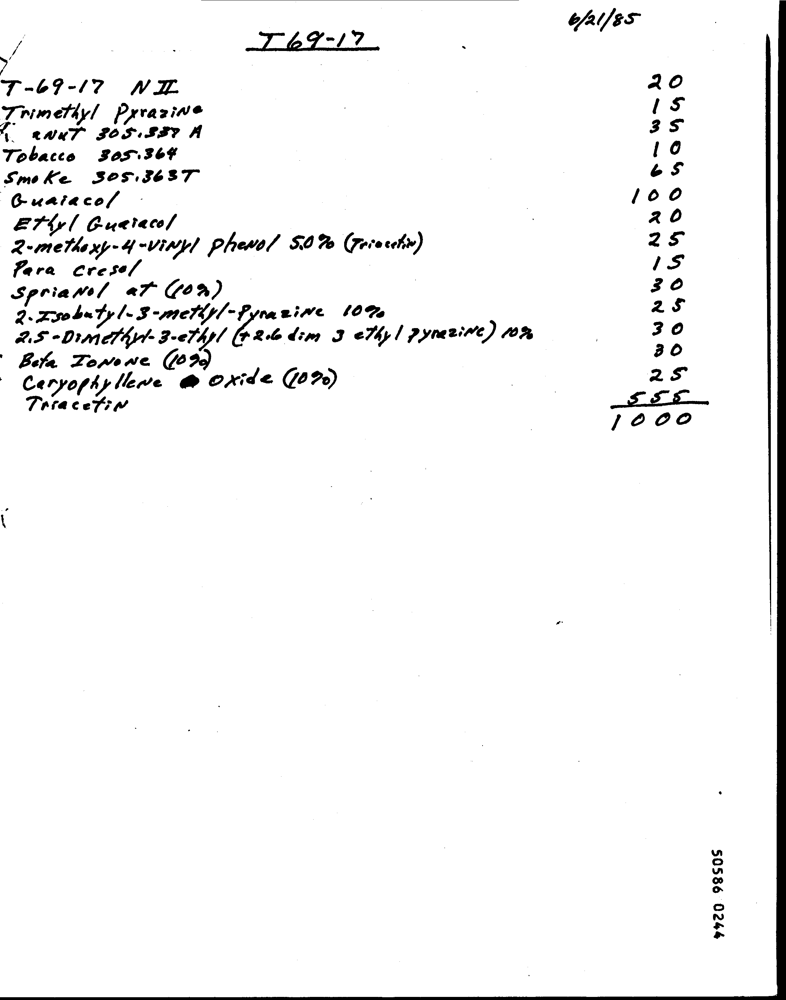 6/21/85
T69-17
T-69-17 N II 20
Trimethyl Pyrazine 15
305.337 A 35
Tobacco 305.364 10
Smoke 305.363T 65
Guaiacol 100
Ethyl Guaiacol 20
2-methoxy-4-vinyl phenol 50% (Triacetin) 25
Para cresol 15
Sprianol at (10%) 30
2-Isobutyl-3-methyl-Pyrazine 10% 25
2.5-Dimethyl-3-ethyl (+2.6 dim 3 ethyl pyrazine) 10% 30
Beta Ionone (10%) 30
Caryophyllene oxide (10%) 25
Triacetin 555
1000
50586 0244